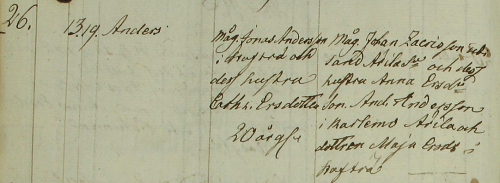 26.
13. 19. Anders
Måg. Jonas Andersson
i Hafträ och
dess hustru
Cath. Ersdotter
20 årg
Måg. Johan Zacrisson
och dess
hustru Anna Ersdr
Son. And. Andersson
i Karlemo
dottren Maja Ersdr i
Hafträ